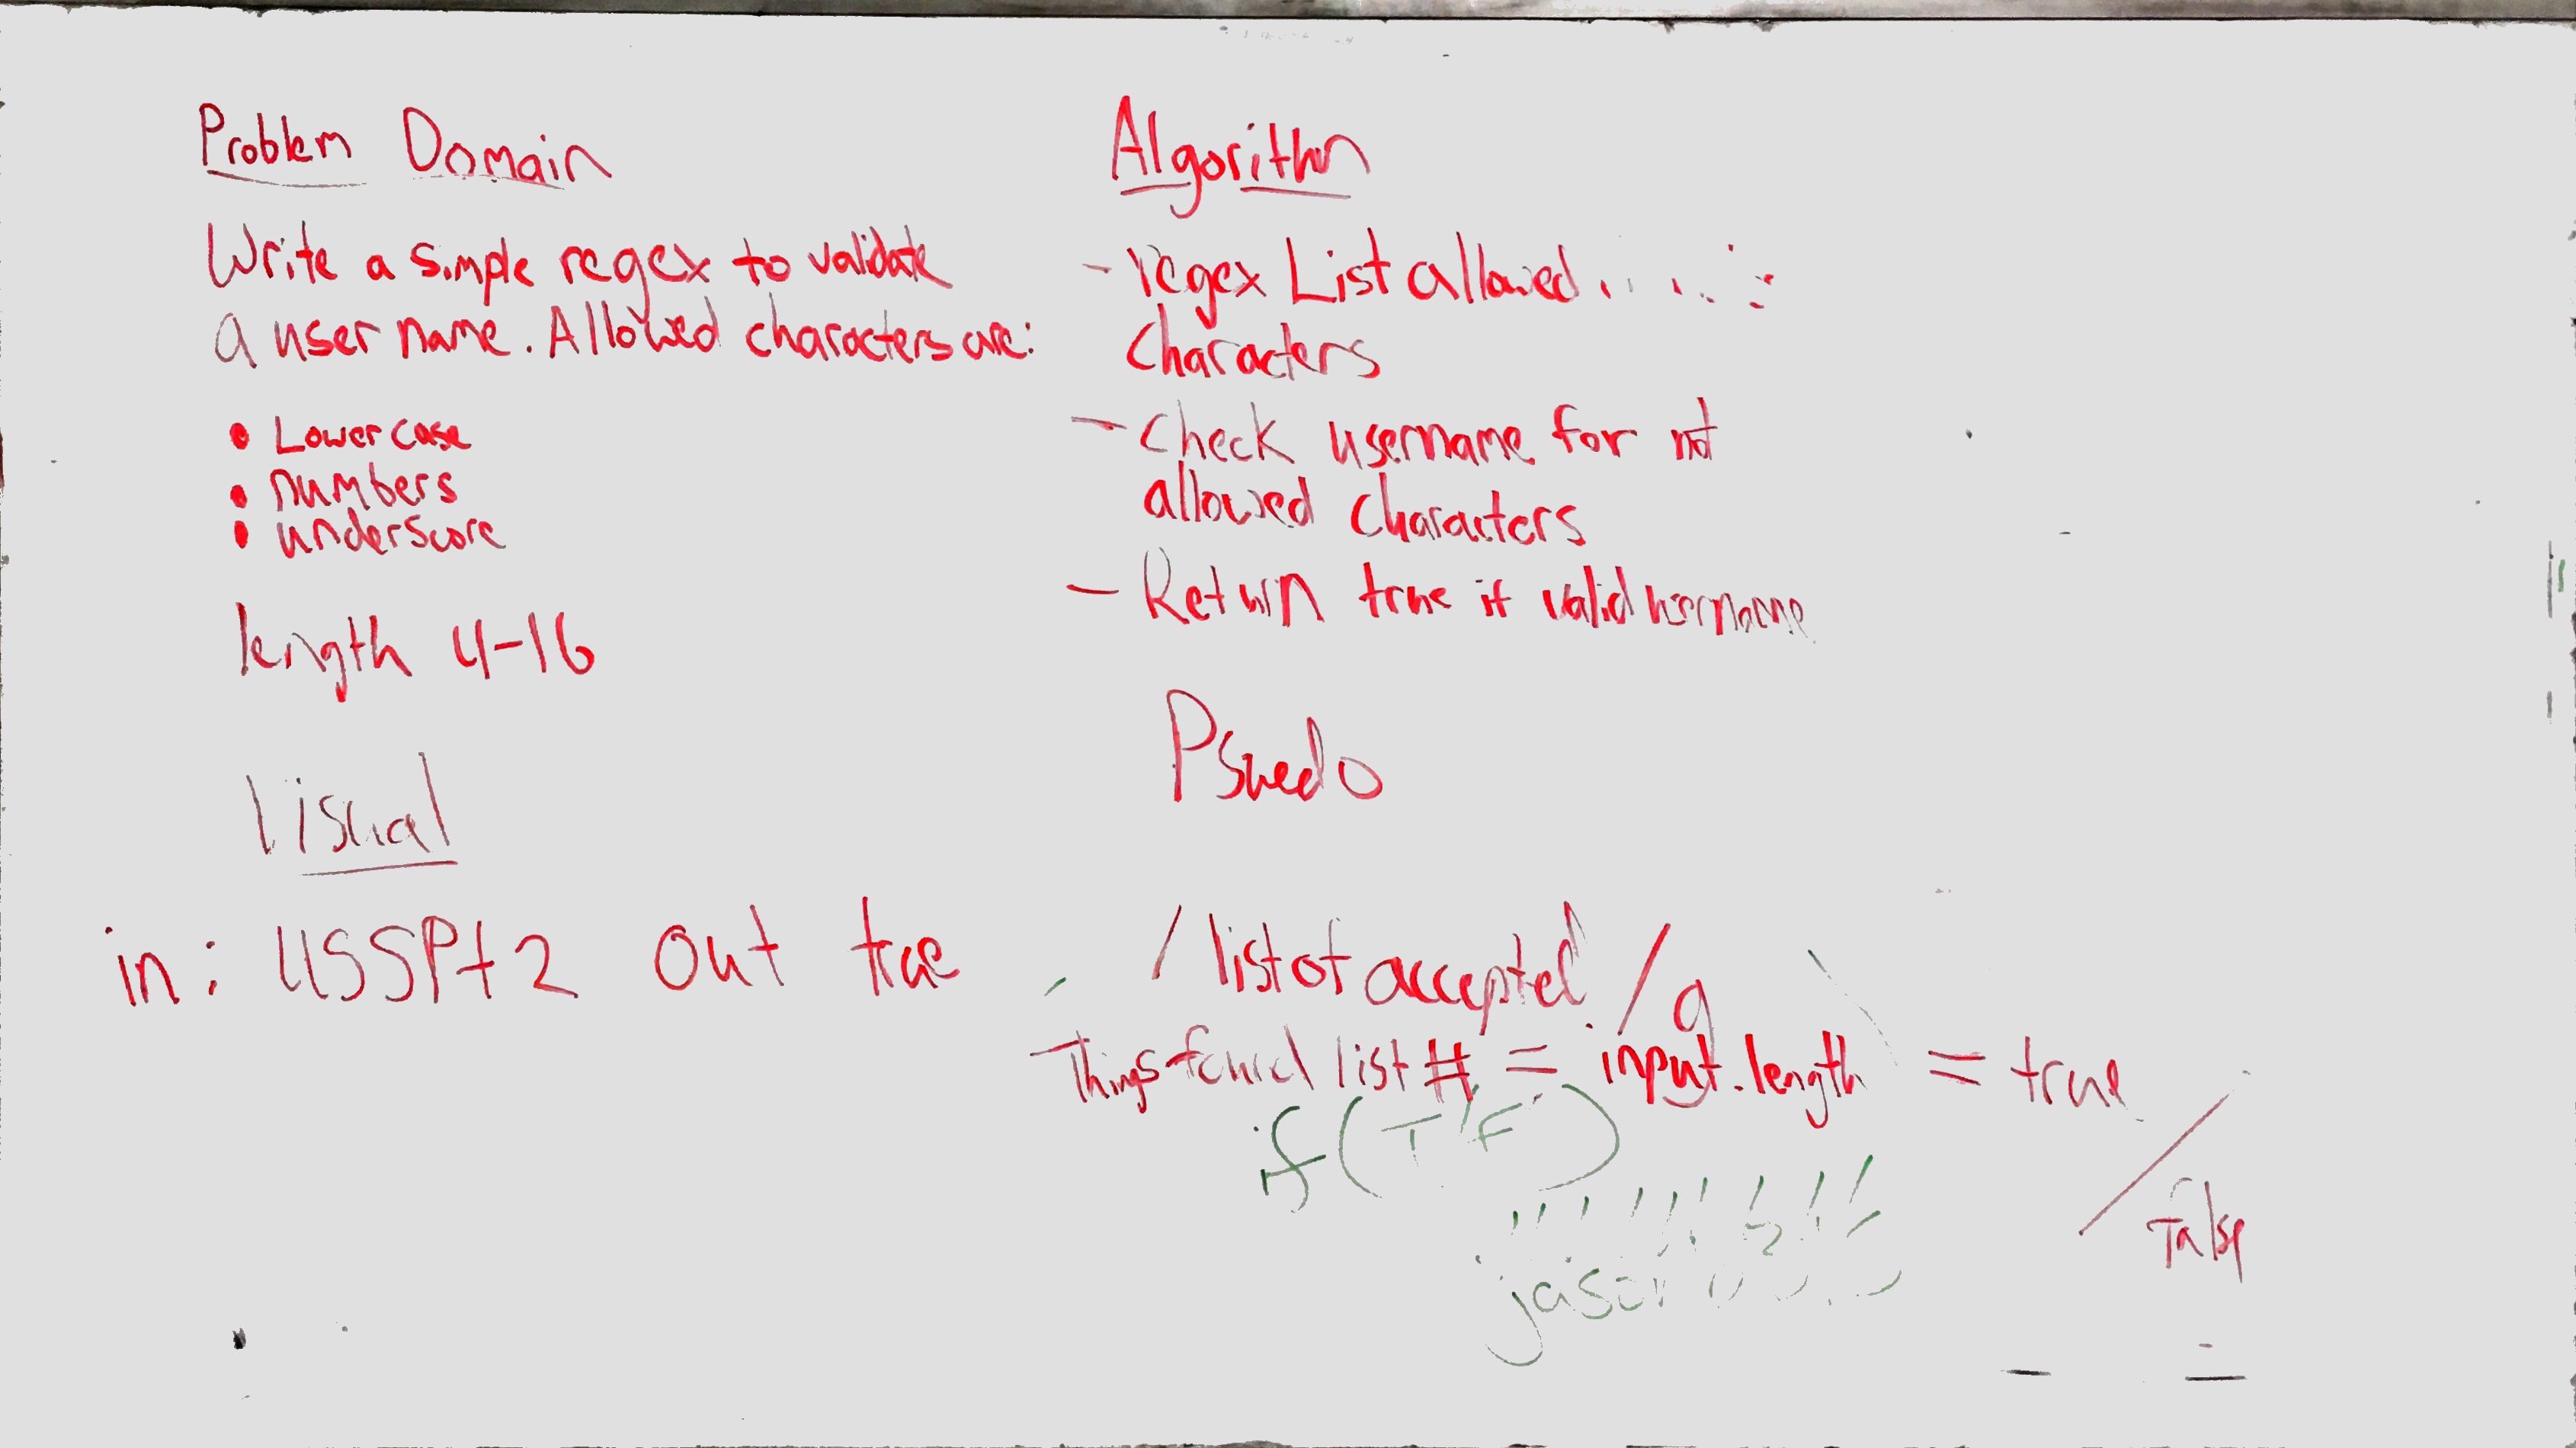 Problem Domain
Write a simple regex to validate
a user name. Allowed characters are:
• Lowercase
• numbers
• underscore
length 4-16
Visual
in: USSPt2 Out true
Algorithm
- regex List allowed
Characters
- Check username for not
allowed characters
- Return true if valid username
Psuedo
/ list of accepted / g
Things found list # = input.length = true
/
False
if (T/F)